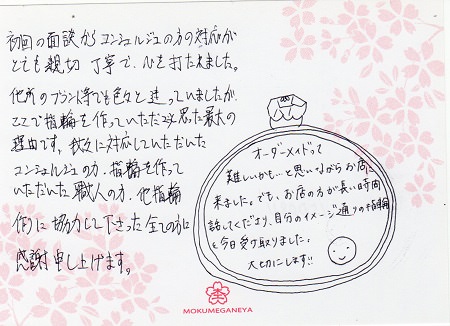 初回の面談からコンシェルジュの方の対応が
とても親切 丁寧で、心を打たれました。
他所のブランド等でも色々と迷っていましたが
ここで指輪を作っていただこうと思った最大の
理由です。我々に対応していただいた
コンシェルジュの方、指輪を作って
いただいた職人の方、他指輪
作りに協力して下さった全ての方に
感謝申し上げます。
オーダーメイドって
難しいかも…と思いながらお店に
来ました。でも、お店の方が長い時間
話してくださり、自分のイメージ通りの指輪
を今日受け取りました。
大切にします!!
MOKUMEGANEYA